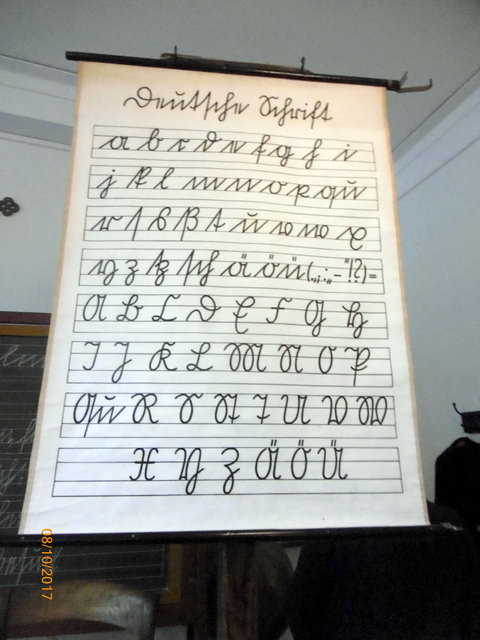 Deutsche Schrift
a b c d e f g h i
j k l m n o p qu
r ſ s ß t u v w x
y z tz ſch ä ö ü (.,;:„-"!?)=
A B C D E F G H
I J K L M N O P
Qu R S St T U V W
X Y Z Ä Ö Ü
08/10/2017